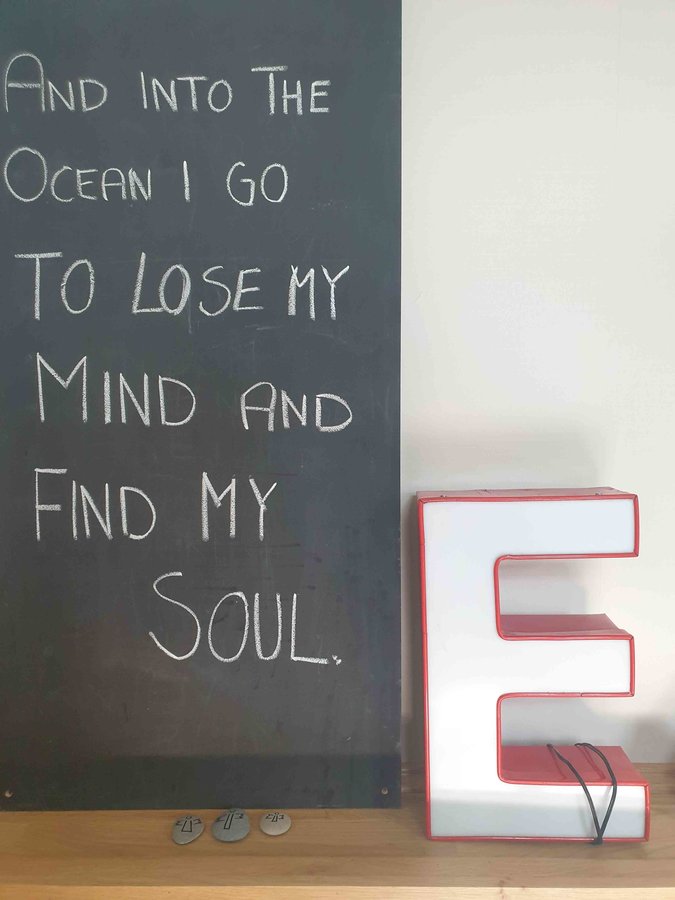 AND INTO THE
OCEAN I GO
TO LOSE MY
MIND AND
FIND MY
SOUL.
E